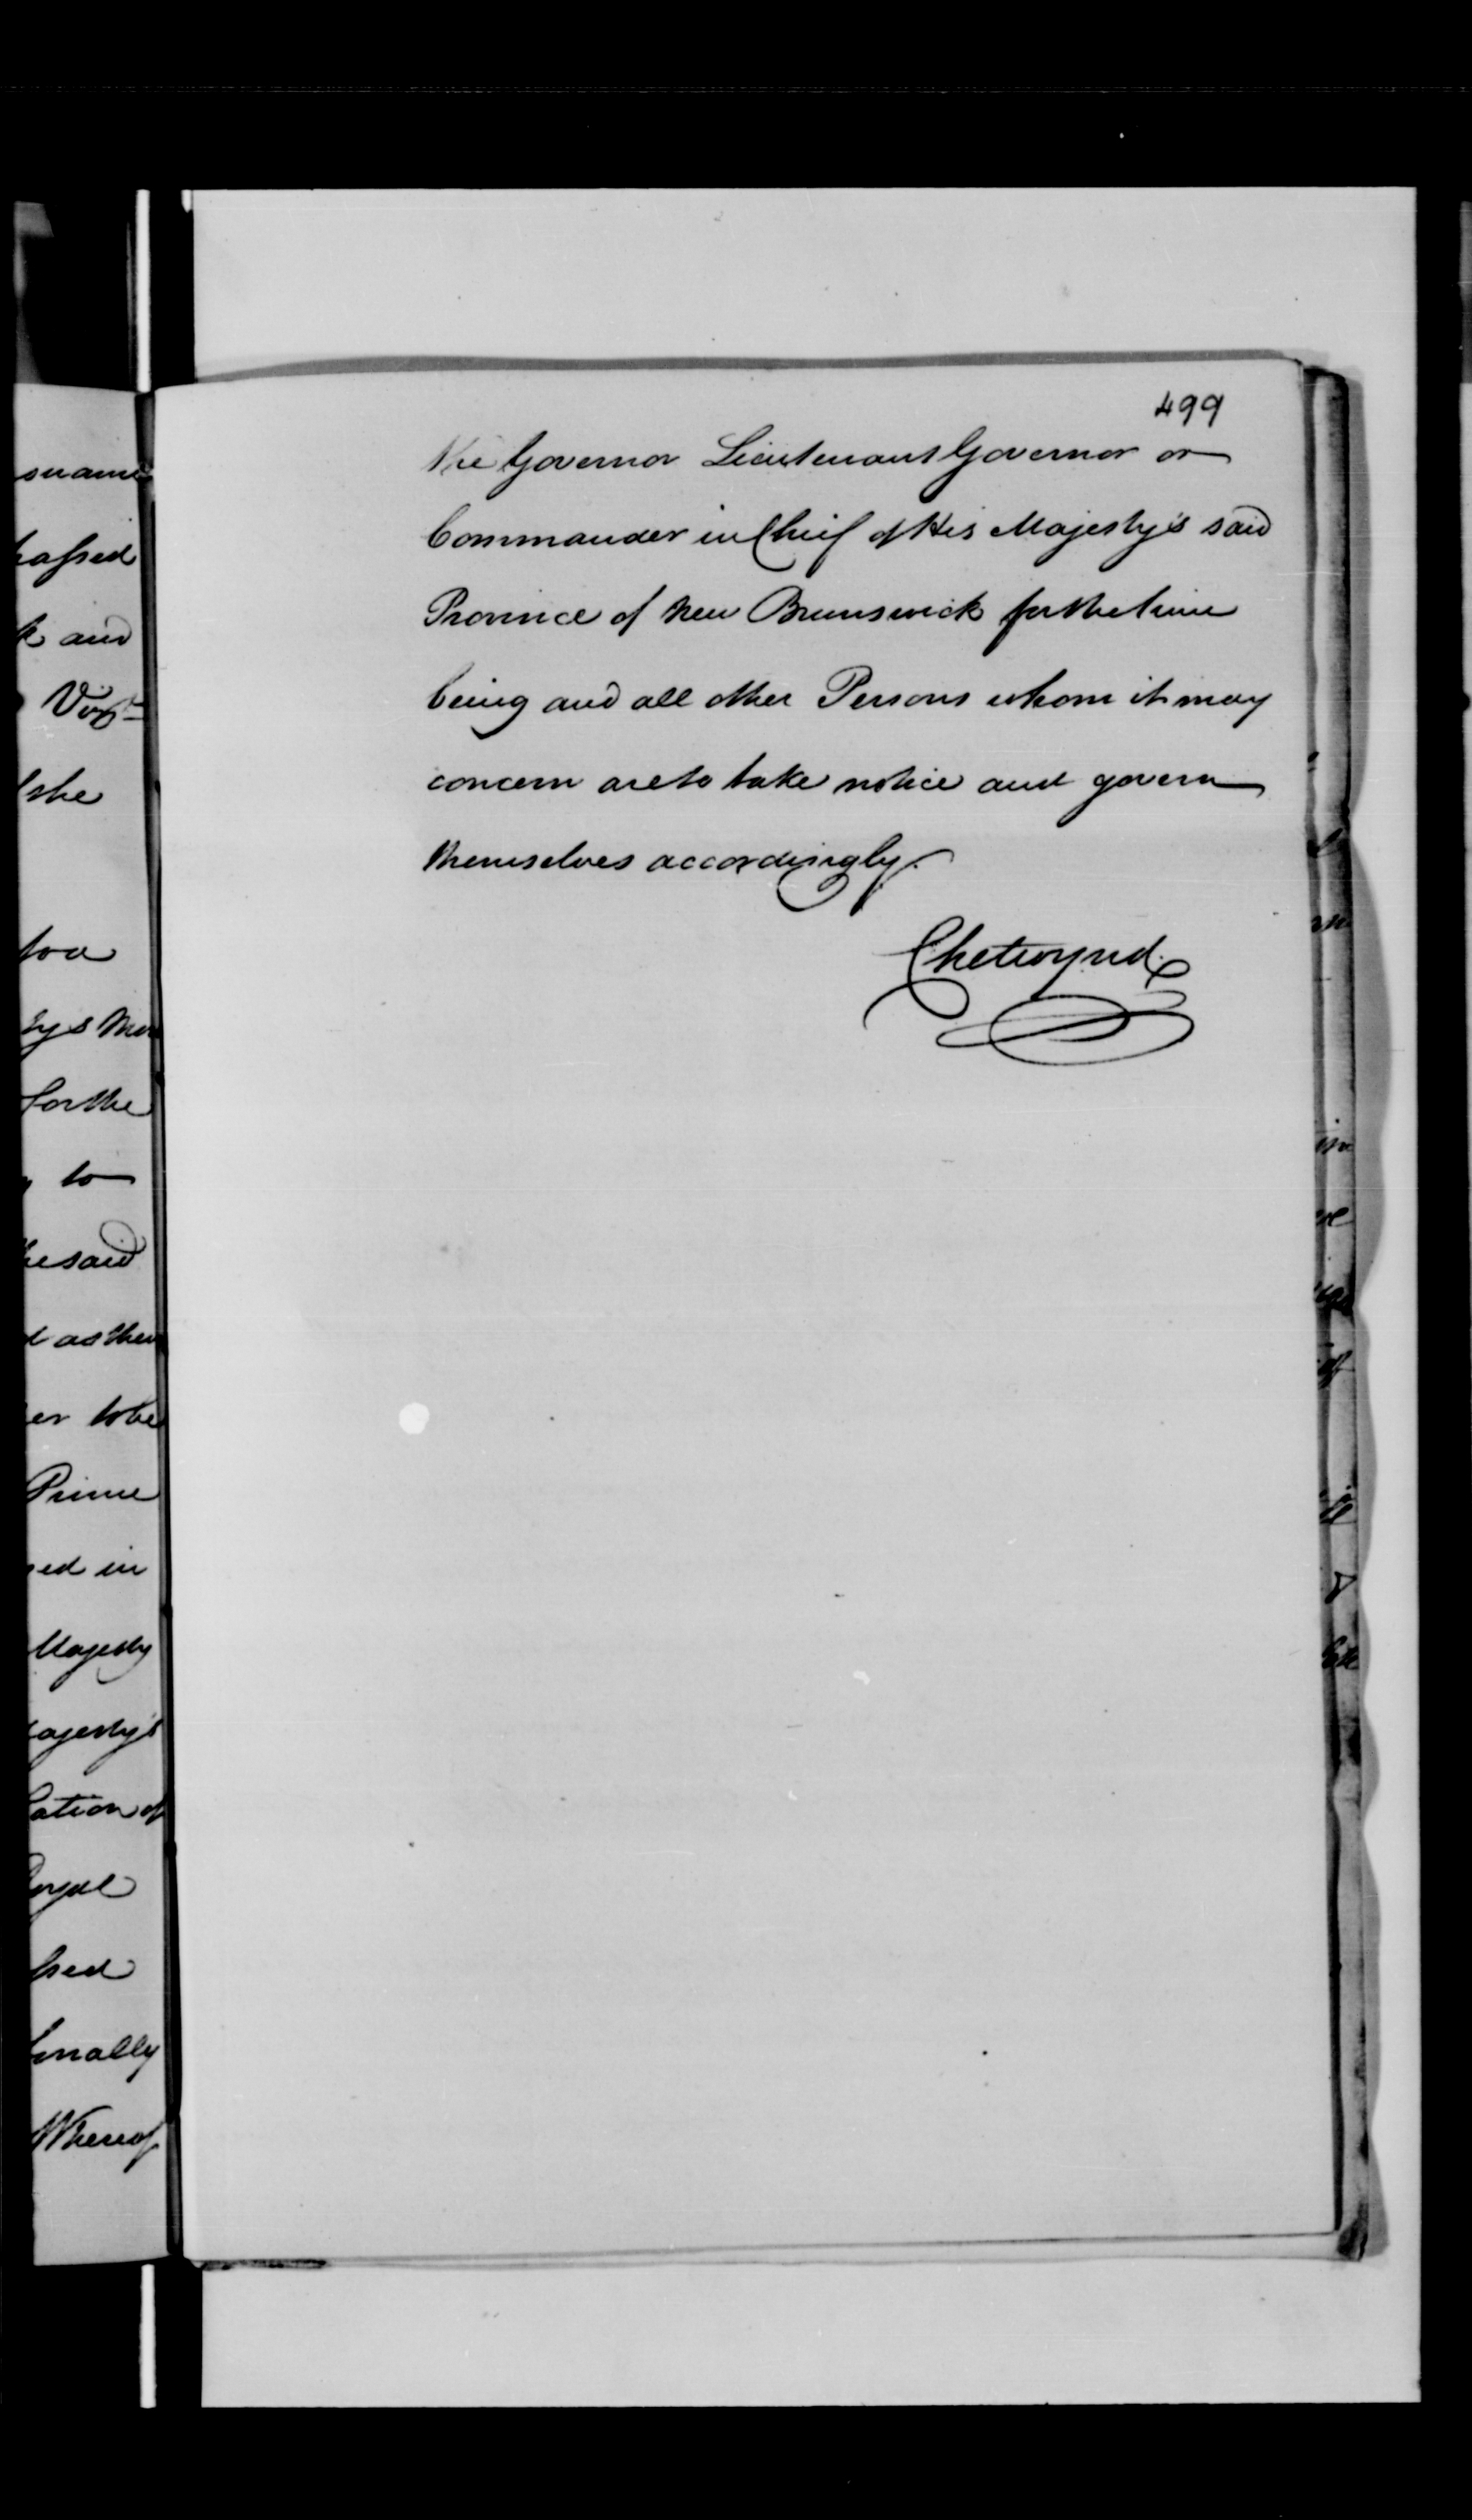 suance
passed
k and
Vizt
the
for a
ty's Mo
for the
to
he said
t as the
er to be
Prince
ed in
Majesty
ajesty's
ation of
oyal
sed
inally
Whereof
499
the Governor Lieutenant Governor or
Commander in Chief of His Majesty's said
Province of New Brunswick for the time
being and all other Persons whom it may
concern are to take notice and govern
themselves accordingly.
Chetwynd